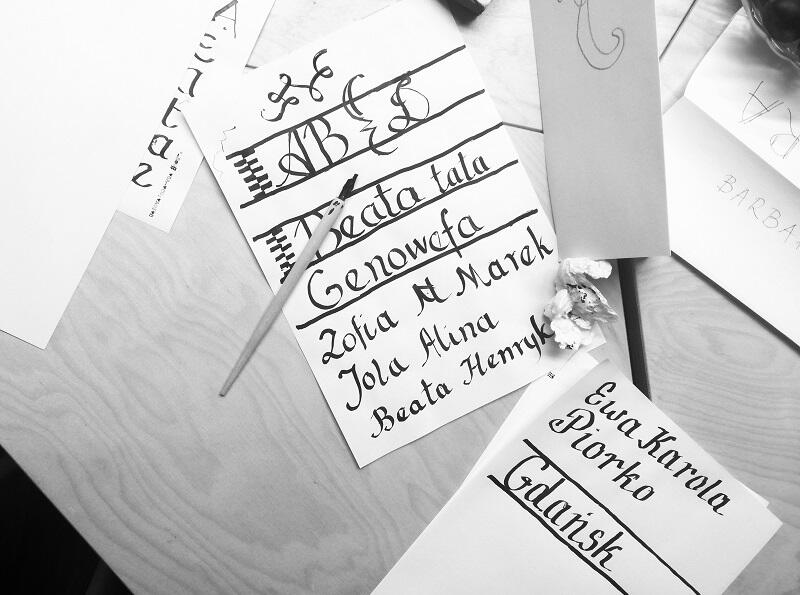 ABCD
Beata tata
Genowefa
Zofia A Marek
Jola Alina
Beata Henryk
Ewa Karola
Piorko
Gdańsk
BARBA